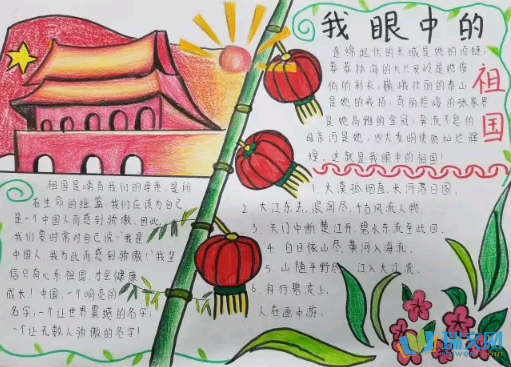 我眼中的
祖国
连绵起伏的长城是她的项链;
是她的戒指,奇丽险峰的张家界
是她高雅的皇冠;奔流不息的
母亲河是她,四大发明使她灿烂辉
煌。这就是我眼中的祖国!
1. 大漠孤烟直,长河落日圆。
2. 大江东去,浪淘尽,千古风流人物。
3. 天门中断楚江开,碧水东流至此回。
4. 白日依山尽,黄河入海流。
5. 山随平野尽,江入大荒流。
6. 舟行碧波上,
人在画中游。
祖国是哺育我们的母亲,是所
有生命的摇篮,我们应该为自己
是一个中国人而感到骄傲。因此
我们要时常对自己说:"我是
中国人,我为此而感到骄傲!"我坚
信只有心系祖国,才会健康
成长!中国,一个响亮的
名字;一个让世界震撼的名字;
一个让无数人骄傲的名字!
瑞文网